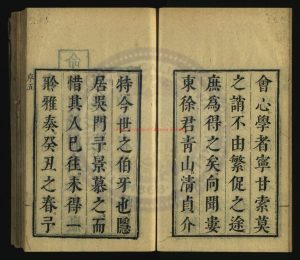 會心學者寧甘索莫
之誚不由繁促之途
庶為得之矣向聞婁
東徐君青山清貞介
特今世之伯牙也隠
居吳門予景慕之而
惜其人已往未得一
聆雅奏癸丑之春予
序五